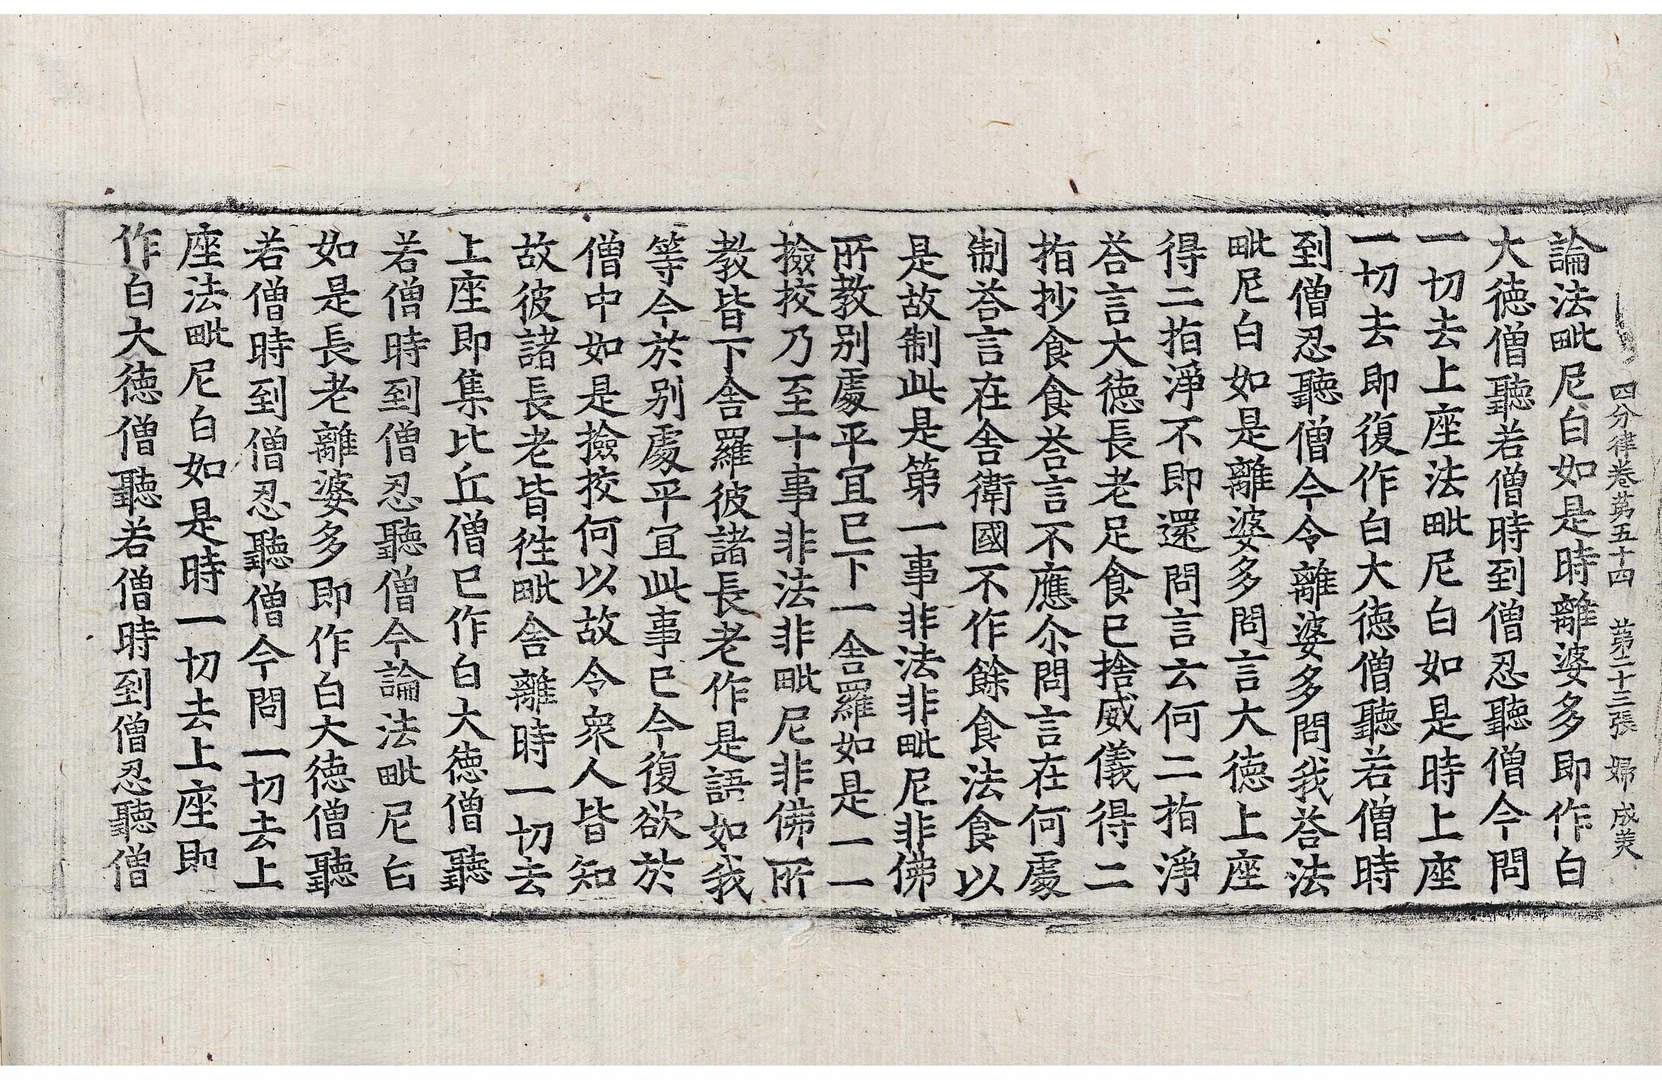 四分律卷第五十四 第二十三張 婦 成美
論法毗尼白如是時離婆多即作白
大德僧聽若僧時到僧忍聽僧今問
一切去上座法毗尼白如是時上座
一切去即復作白大德僧聽若僧時
到僧忍聽僧今令離婆多問我荅法
毗尼白如是離婆多問言大德上座
得二指淨不即還問言云何二指淨
荅言大德長老足食已捨威儀得二
指抄食食荅言不應尒問言在何處
制荅言在舍衛國不作餘食法食以
是故制此是第一事非法非毗尼非佛
所教別處平宜已下一舍羅如是一一
撿挍乃至十事非法非毗尼非佛所
教皆下舍羅彼諸長老作是語如我
等今於別處平宜此事已今復欲於
僧中如是撿挍何以故令衆人皆知
故彼諸長老皆徃毗舍離時一切去
上座即集比丘僧已作白大德僧聽
若僧時到僧忍聽僧今論法毗尼白
如是長老離婆多即作白大德僧聽
若僧時到僧忍聽僧今問一切去上
座法毗尼白如是時一切去上座即
作白大德僧聽若僧時到僧忍聽僧